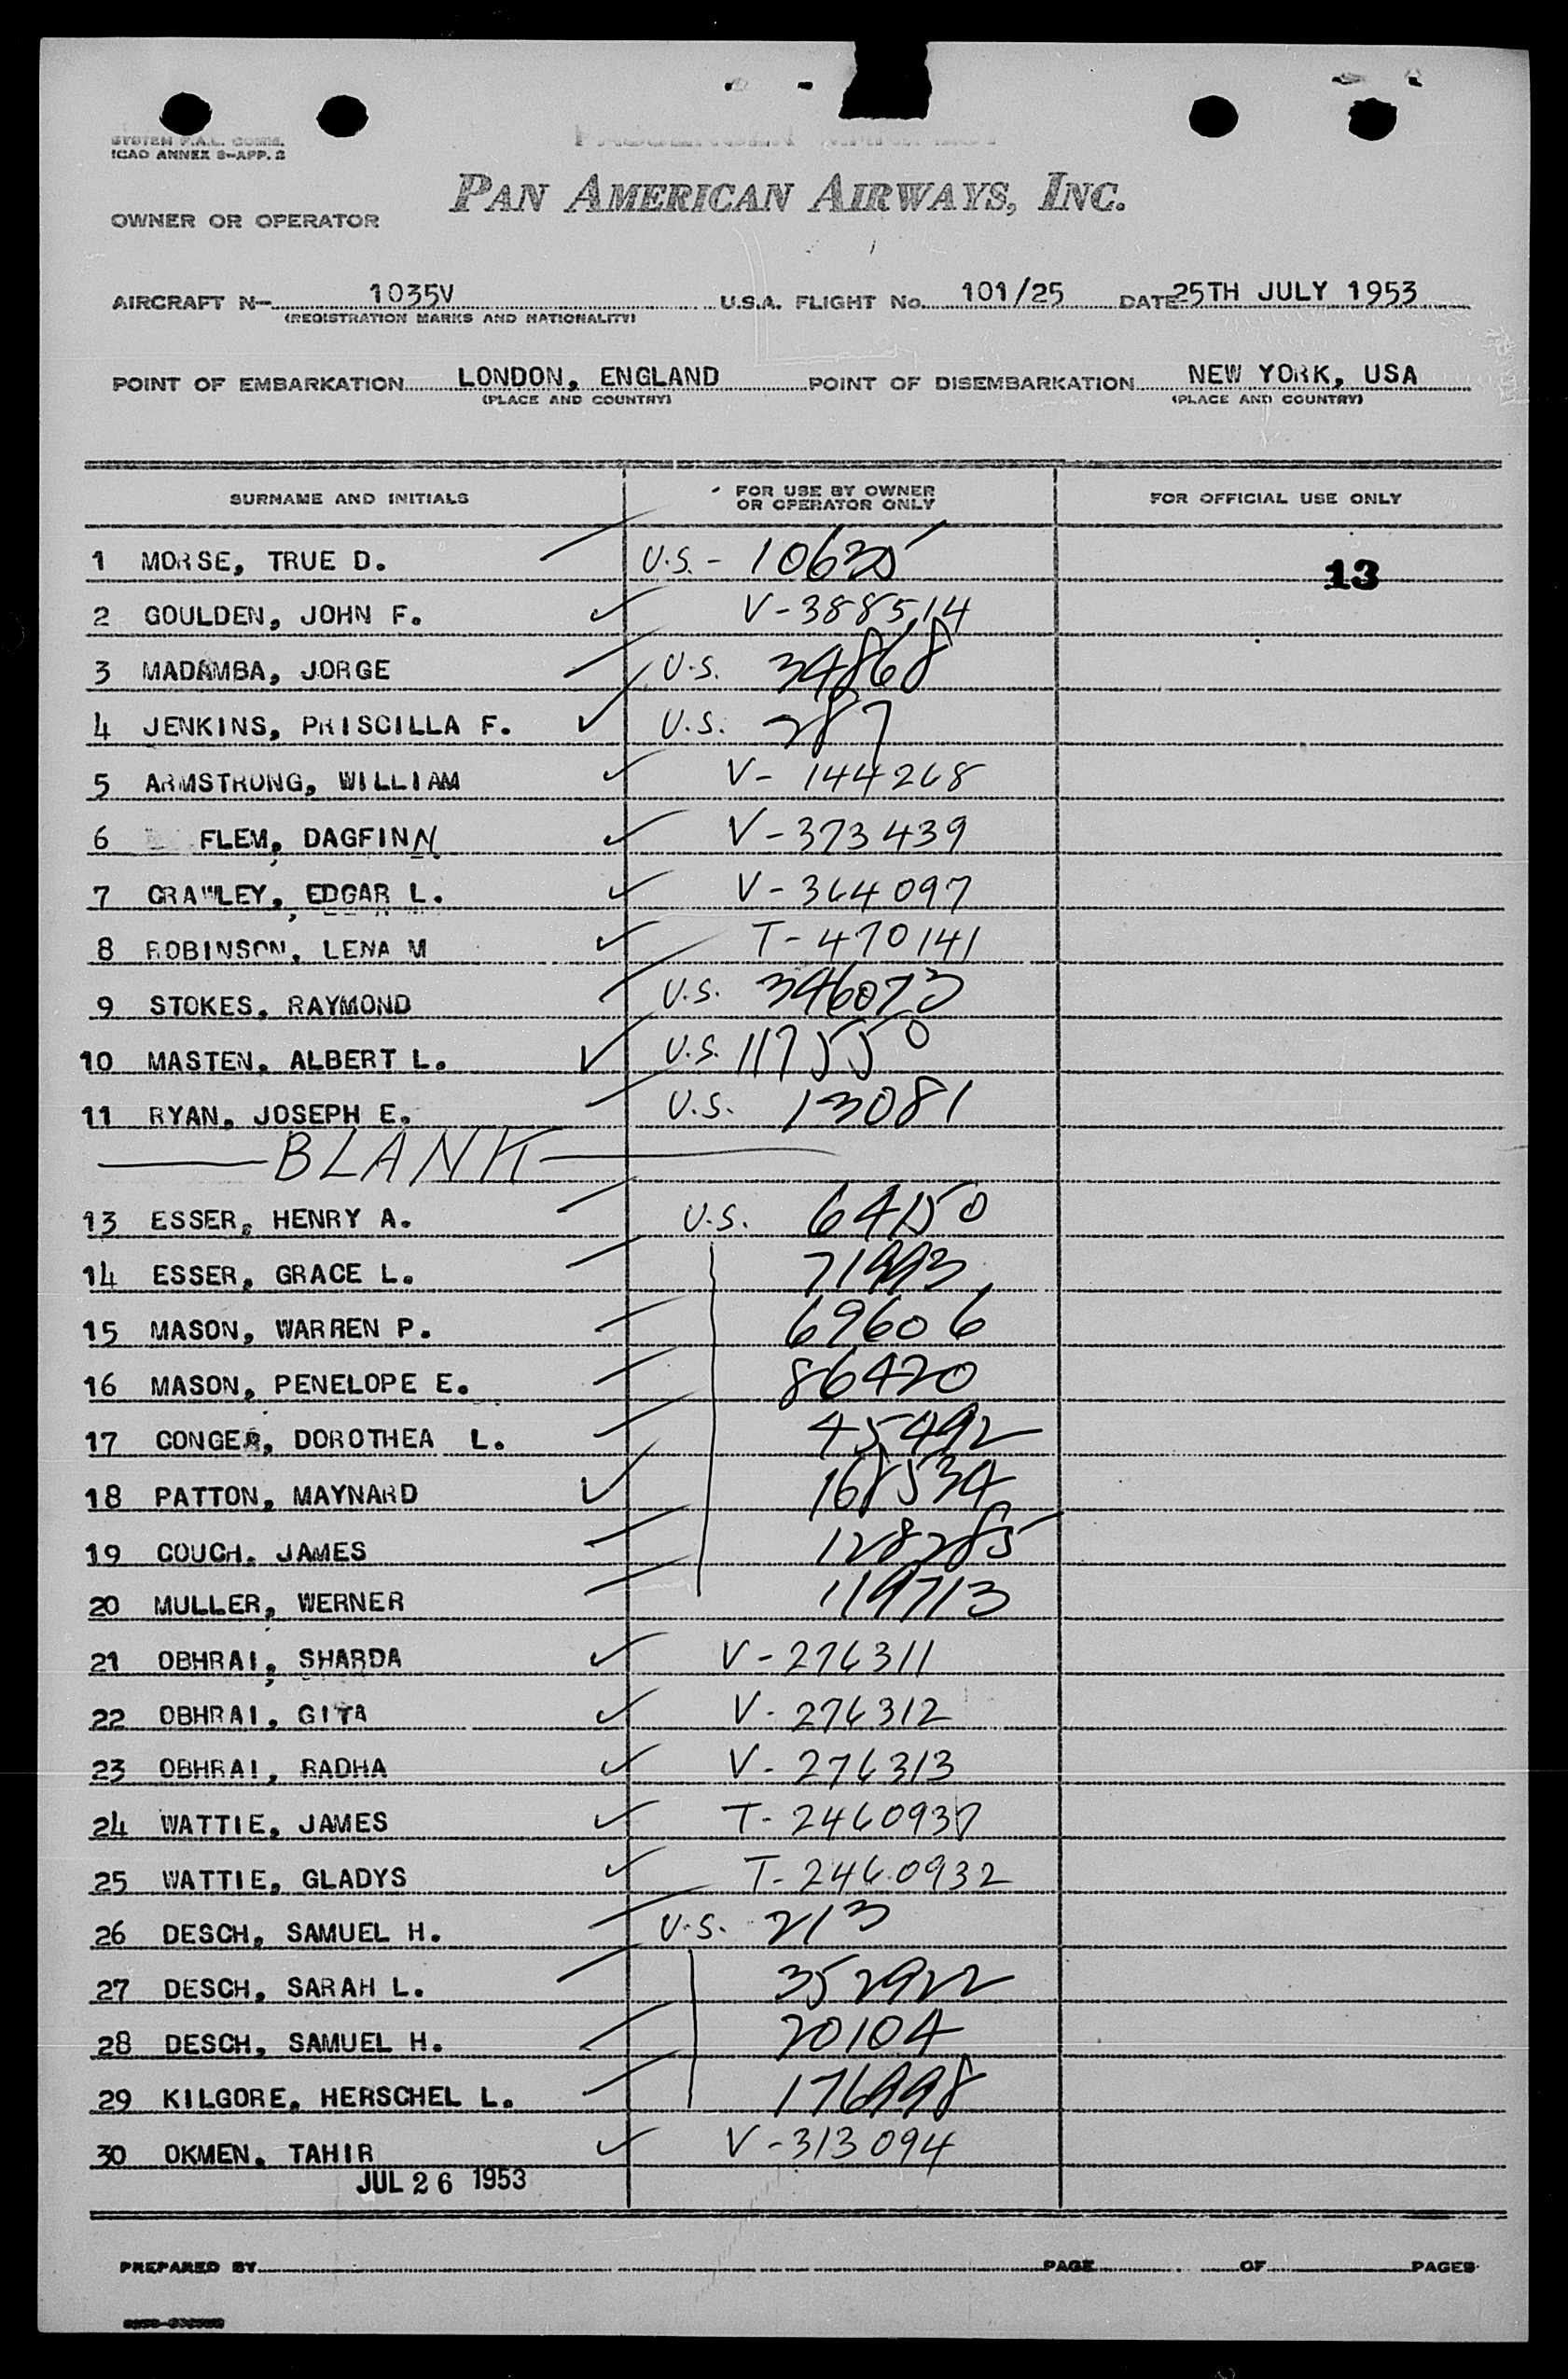 SYSTEM F.A.L. COMM.
ICAO ANNEX 9-APP. 2
PASSENGER MANIFEST
PAN AMERICAN AIRWAYS, INC.
OWNER OR OPERATOR
AIRCRAFT N- 1035V U.S.A. FLIGHT No. 101/25 DATE 25TH JULY 1953
(REGISTRATION MARKS AND NATIONALITY)
POINT OF EMBARKATION LONDON, ENGLAND POINT OF DISEMBARKATION NEW YORK, USA
(PLACE AND COUNTRY) (PLACE AND COUNTRY)
SURNAME AND INITIALS FOR USE BY OWNER OR OPERATOR ONLY FOR OFFICIAL USE ONLY
1 MORSE, TRUE D. U.S. - 10635 13
2 GOULDEN, JOHN F. V-388514
3 MADAMBA, JORGE U.S. 34868
4 JENKINS, PRISCILLA F. U.S. 287
5 ARMSTRONG, WILLIAM V- 144268
6 FLEM, DAGFINN V-373439
7 CRAWLEY, EDGAR L. V-364097
8 ROBINSON, LENA M T-470141
9 STOKES, RAYMOND U.S. 346073
10 MASTEN, ALBERT L. U.S. 117550
11 RYAN, JOSEPH E. U.S. 13081
BLANK
13 ESSER, HENRY A. U.S. 64150
14 ESSER, GRACE L. 71993
15 MASON, WARREN P. 69606
16 MASON, PENELOPE E. 86420
17 CONGER, DOROTHEA L. 45492
18 PATTON, MAYNARD 168534
19 COUCH. JAMES 128285
20 MULLER, WERNER 119713
21 OBHRAI, SHARDA V-276311
22 OBHRAI, GITA V-276312
23 OBHRAI, RADHA V-276313
24 WATTIE, JAMES
25 WATTIE, GLADYS T-2460932
26 DESCH, SAMUEL H. U.S. 213
27 DESCH, SARAH L. 352922
28 DESCH, SAMUEL H. 20104
29 KILGORE, HERSCHEL L. 176998
30 OKMEN, TAHIR V-313094
JUL 26 1953
PREPARED BY PAGE OF PAGES